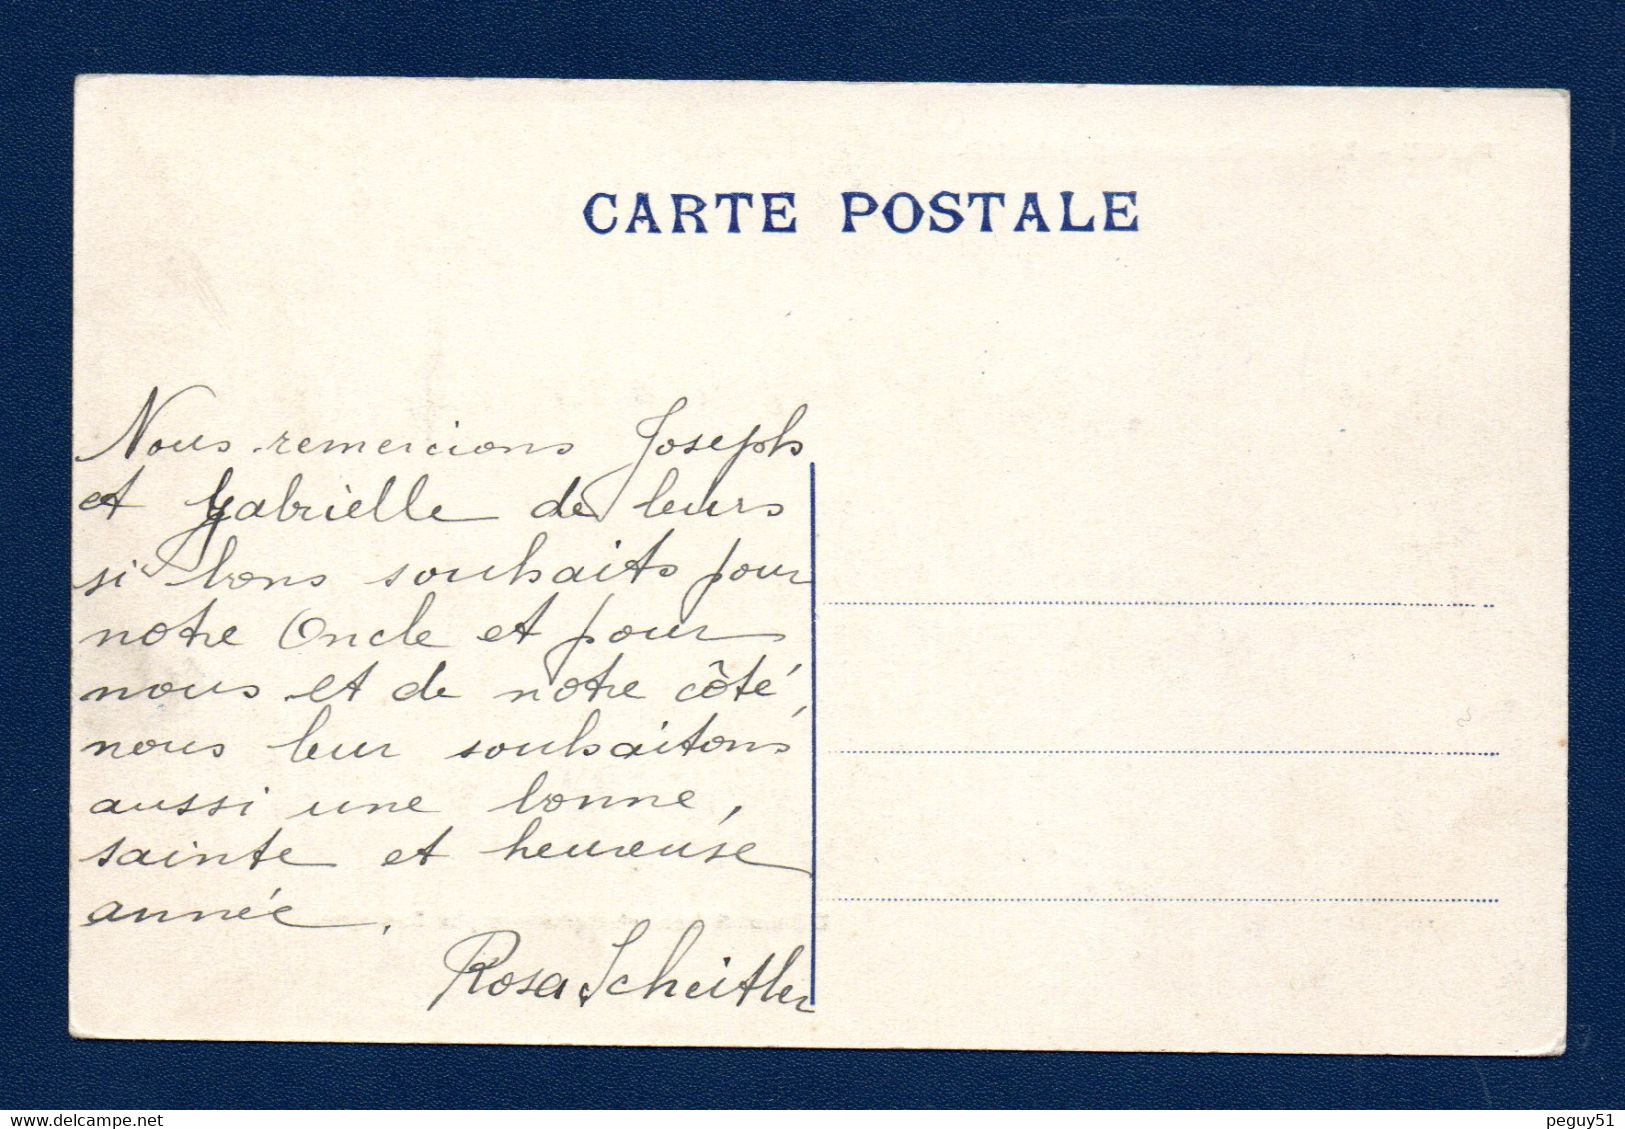 CARTE POSTALE
Nous remercions Joseph
et Gabrielle de leurs
si bons souhaits pour
notre Oncle et pour
nous et de notre côté,
nous leur souhaitons
aussi une bonne,
sainte et heureuse
année.
Rosa Scheitler
delcampe.net
peguy51